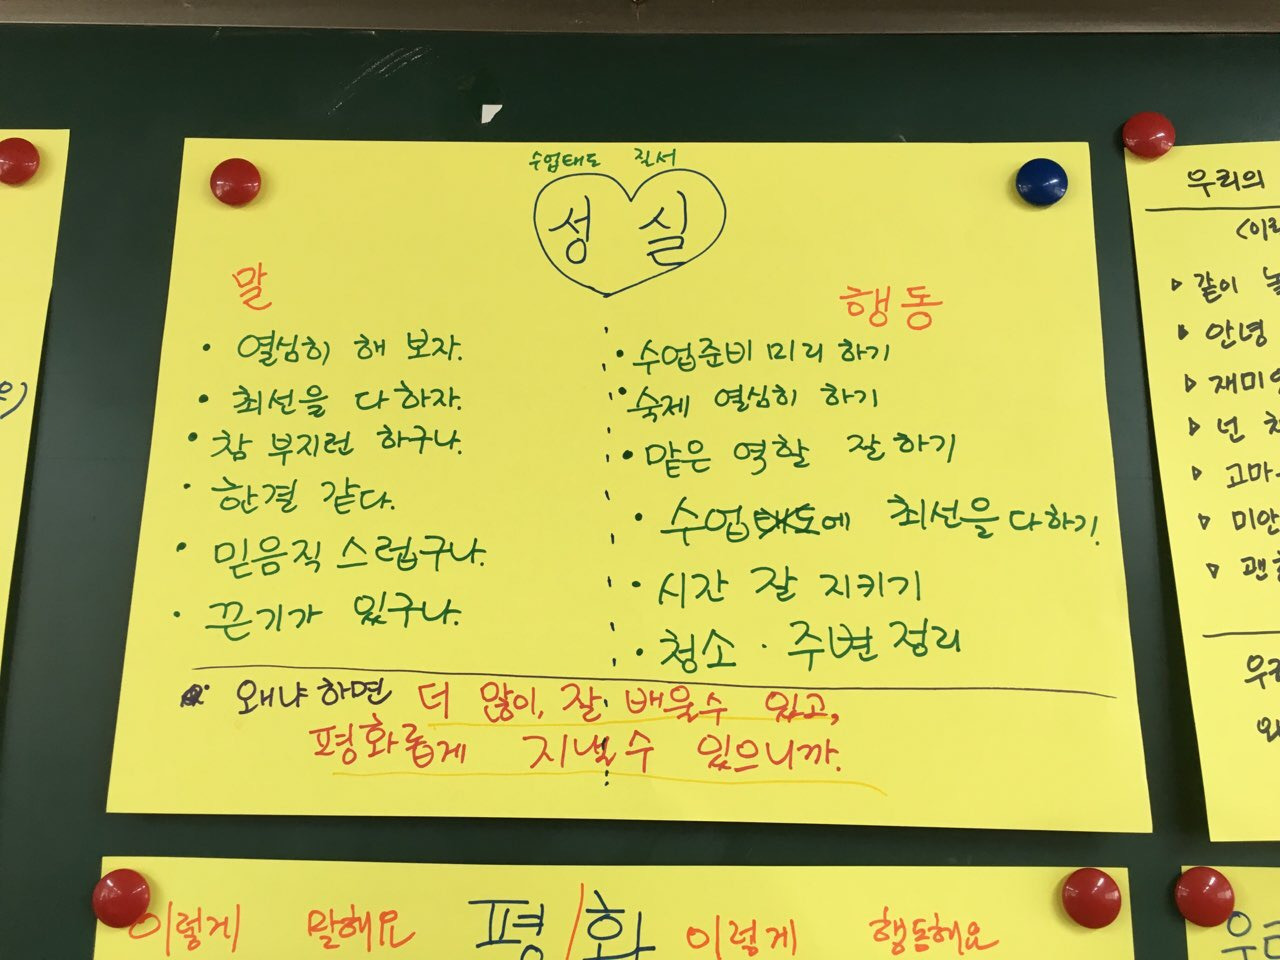 수업태도 질서
성실
말
• 열심히 해 보자.
• 최선을 다하자.
• 참 부지런 하구나.
• 한결 같다.
• 믿음직 스럽구나.
• 끈기가 있구나.
행동
• 수업준비 미리 하기
• 숙제 열심히 하기
• 맡은 역할 잘하기
• 수업태도에 최선을 다하기!
• 시간 잘 지키기
• 청소 · 주변 정리
왜냐하면 더 많이, 잘 배울수 있고,
평화롭게 지낼수 있으니까.
이렇게 말해요 평/화 이렇게 행동해요
우리의
<이
▷ 같이
▷ 안녕
▷ 재미
▷ 넌
▷ 고마
▷ 미안
▷ 괜
우리